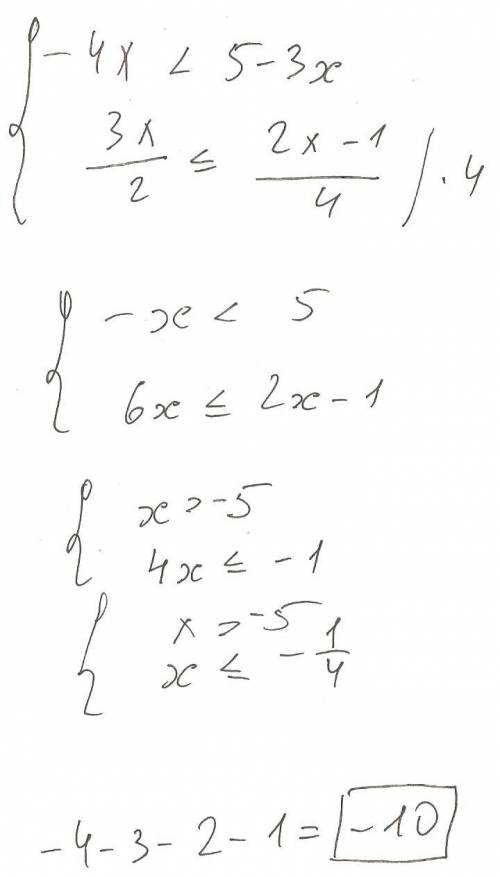 { -4x < 5-3x
3x/2 ≤ (2x-1)/4 /·4
{ -x < 5
6x ≤ 2x-1
{ x>-5
4x ≤ -1
{ x>-5
x ≤ -1/4
-4-3-2-1= -10